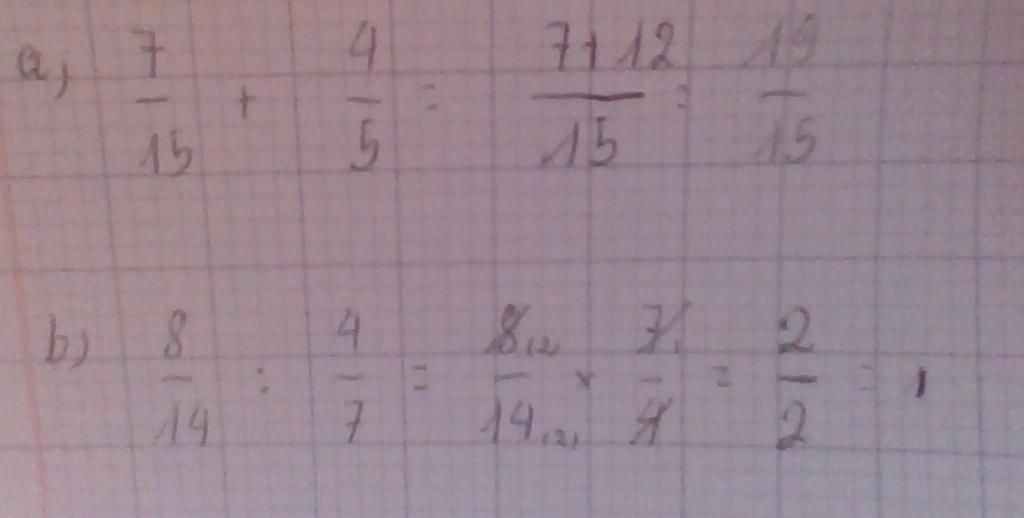 a, 7/15 + 4/5 = 7+12/15 = 19/15
b) 8/14 : 4/7 = 8(2/14(2) × 7/4 = 2/2 = 1